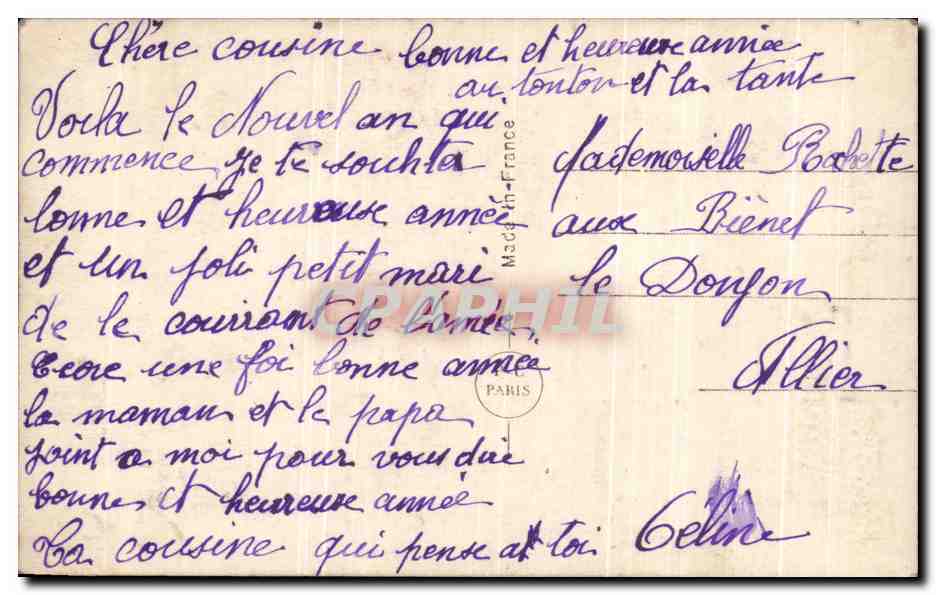 Chère cousine bonne et heureuse année
au tonton et la tante
Voila le Nouvel an qui
commence, je te souhta
bonne et heureuse année
et un joli petit mari
de le courrant de lannée,
Ecore une foi bonne année
la maman et le papa
joint a moi pour vous dire
bonne et heureuse année
Ta cousine qui pense a toi Celine
Mademoiselle
aux Biénet
le Donjon
Allier
Made in France
PARIS
CPAPHIL